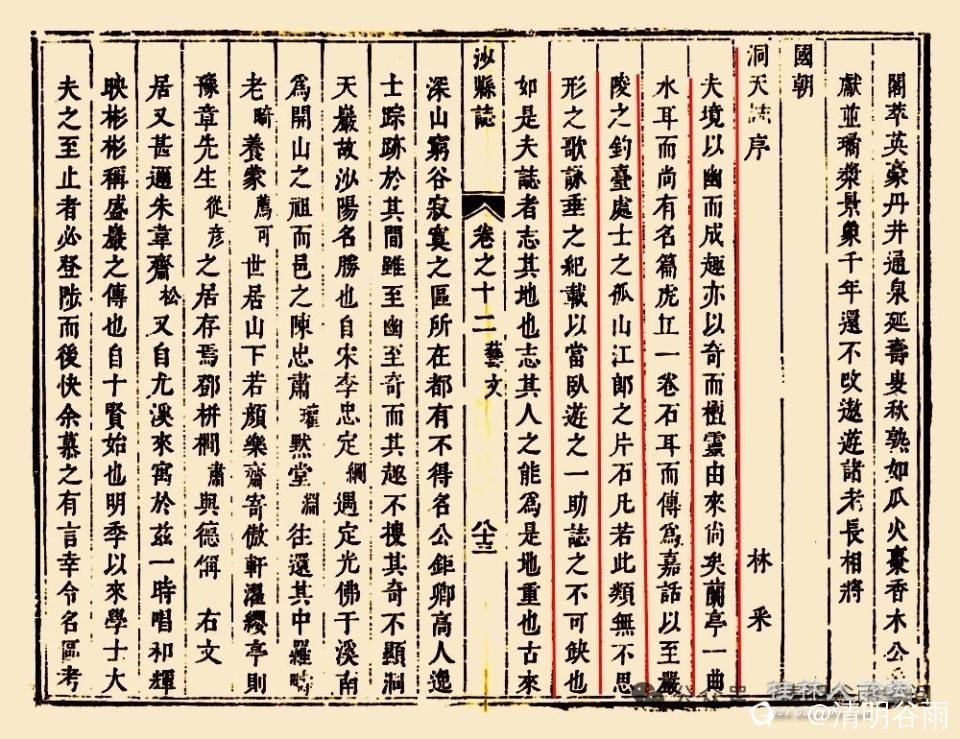 閣萃英豪丹井通泉延壽叟秋熟如瓜火棗香木公
獻並璚漿景象千年還不改遨遊諸老長相將
國朝
洞天誌序 林采
夫境以幽而成趣亦以奇而標靈由來尚矣蘭亭一曲
水耳而尚有名篇虎丘一卷石耳而傳爲嘉話以至嚴
陵之釣臺處士之孤山江郎之片石凡若此類無不思
形之歌詠垂之紀載以當臥遊之一助誌之不可缺也
如是夫誌者志其地也志其人之能爲是地重也古來
沙縣誌 卷之十二 藝文 八十三
深山窮谷寂寞之區所在都有不得名公鉅卿高人逸
士踪跡於其間雖至幽至奇而其趣不搜其奇不顯洞
天巖故沙陽名勝也自宋李忠定綱遇定光佛于溪南
爲開山之祖而邑之陳忠肅瓘默堂淵往還其中羅畸
老畸養蒙薦可世居山下若顏樂齋寄傲軒濯纓亭則
豫章先生從彥之居存焉鄧栟櫚肅與德偁 右文
居又甚邇朱韋齋松又自尤溪來寓於兹一時唱和輝
映彬彬稱盛巖之傳也自十賢始也明季以來學士大
夫之至止者必登陟而後快余慕之有言幸令名區考
@清明谷雨